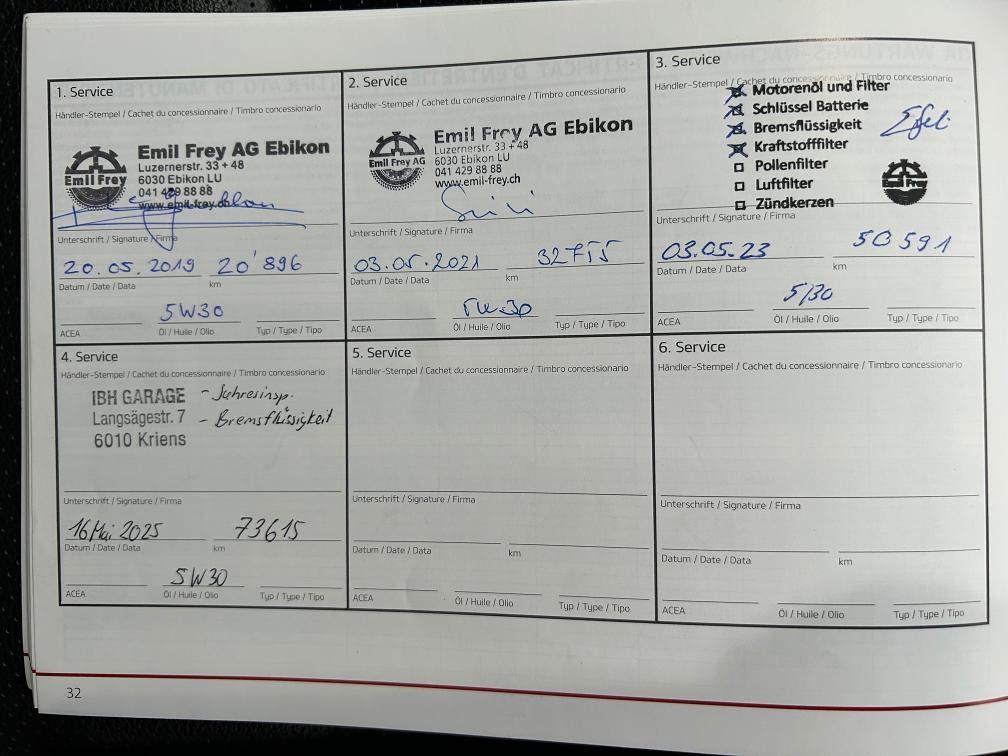 1. Service
Händler-Stempel / Cachet du concessionnaire / Timbro concessionario
Emil Frey
Emil Frey AG Ebikon
Luzernerstr. 33 + 48
6030 Ebikon LU
041 429 88 88
www.emil-frey.ch
Unterschrift / Signature / Firma
20.05.2019 20'896
Datum / Date / Data km
5W30
ACEA Öl / Huile / Olio Typ / Type / Tipo
2. Service
Händler-Stempel / Cachet du concessionnaire / Timbro concessionario
Emil Frey AG
Emil Frey AG Ebikon
Luzernerstr. 33 + 48
6030 Ebikon LU
041 429 88 88
www.emil-frey.ch
Unterschrift / Signature / Firma
03.05.2021 32755
Datum / Date / Data km
5W-30
ACEA Öl / Huile / Olio Typ / Type / Tipo
3. Service
Händler-Stempel / Cachet du concessionnaire / Timbro concessionario
Motorenöl und Filter
Schlüssel Batterie
Bremsflüssigkeit
Kraftstofffilter
Pollenfilter
Luftfilter
Zündkerzen
Emil Frey
Unterschrift / Signature / Firma
03.05.23 50591
Datum / Date / Data km
5/30
ACEA Öl / Huile / Olio Typ / Type / Tipo
4. Service
Händler-Stempel / Cachet du concessionnaire / Timbro concessionario
IBH GARAGE - Jahresinsp.
Langsägestr. 7 - Bremsflüssigkeit
6010 Kriens
Unterschrift / Signature / Firma
16 Mai 2025 73615
Datum / Date / Data km
5W30
ACEA Öl / Huile / Olio Typ / Type / Tipo
5. Service
Händler-Stempel / Cachet du concessionnaire / Timbro concessionario
Unterschrift / Signature / Firma
Datum / Date / Data km
ACEA Öl / Huile / Olio Typ / Type / Tipo
6. Service
Händler-Stempel / Cachet du concessionnaire / Timbro concessionario
Unterschrift / Signature / Firma
Datum / Date / Data km
ACEA Öl / Huile / Olio Typ / Type / Tipo
32